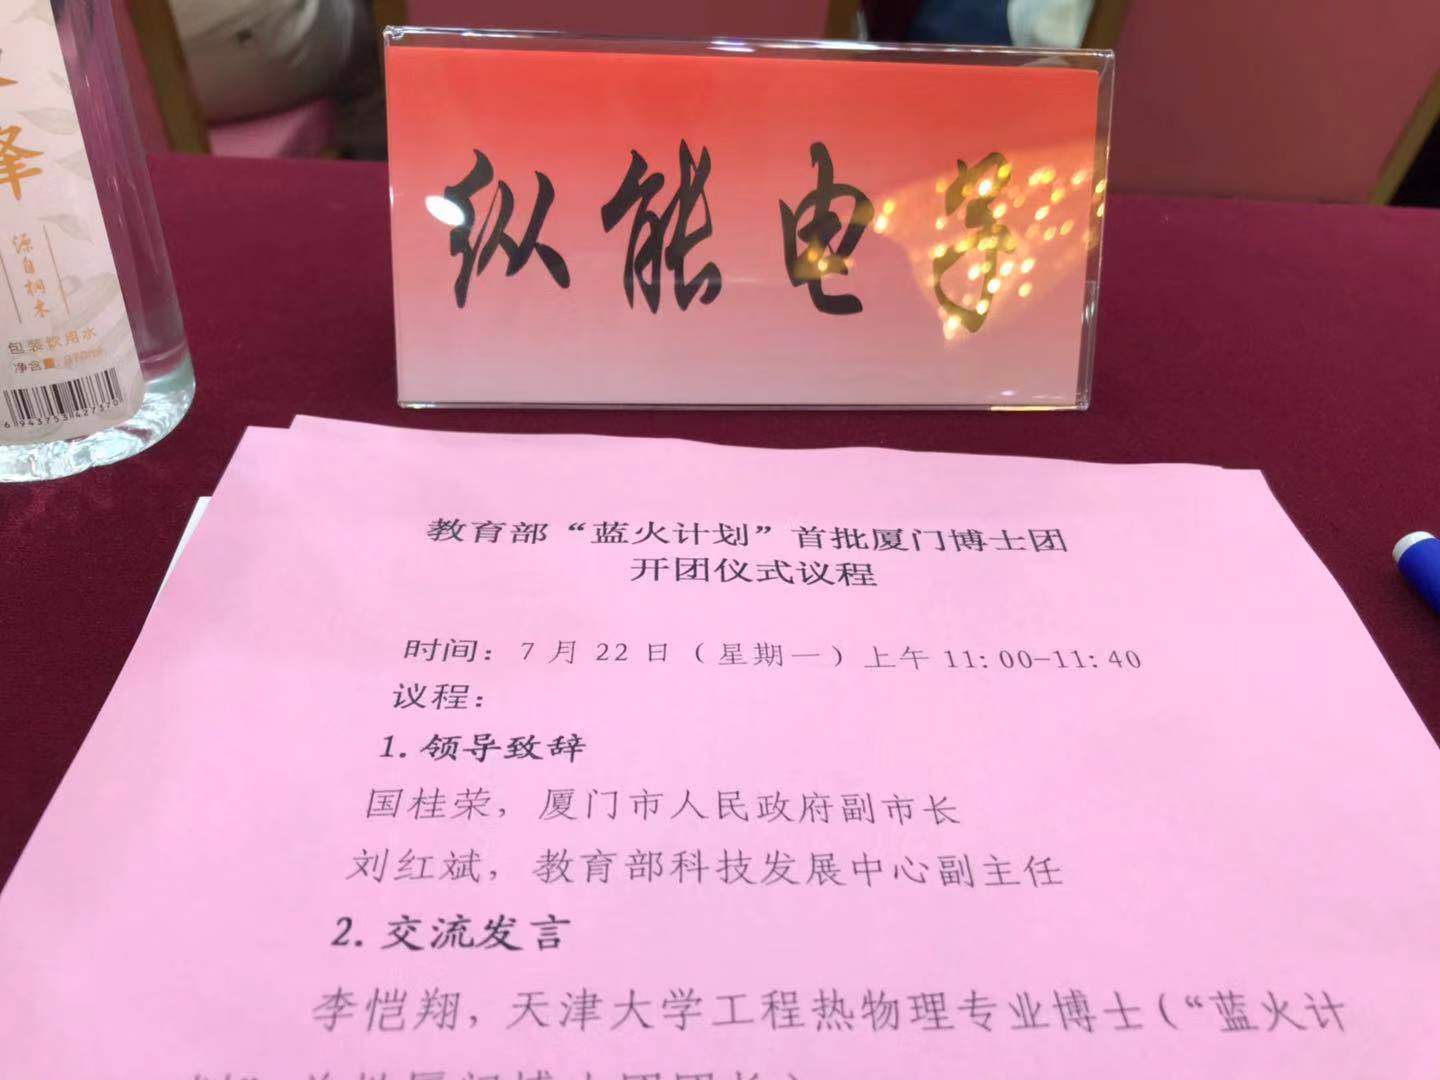 峰
源自桐木
包装饮用水
净含量
6943753427370
纵能电子
教育部“蓝火计划”首批厦门博士团
开团仪式议程
时间：7月22日（星期一）上午11:00-11:40
议程：
1.领导致辞
国桂荣，厦门市人民政府副市长
刘红斌，教育部科技发展中心副主任
2.交流发言
李恺翔，天津大学工程热物理专业博士（“蓝火计
划”首批厦门博士团团长）